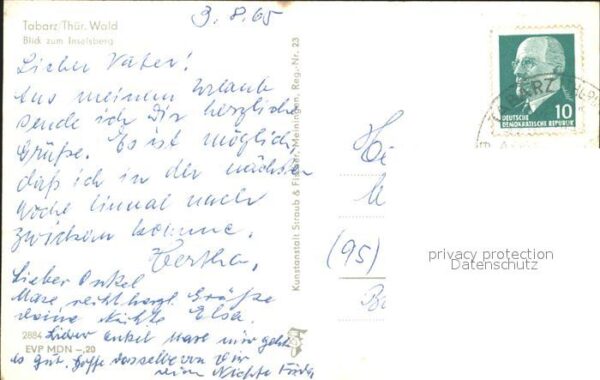 9.8.65
Tabarz/Thür. Wald
Blick zum Inselsberg
Lieber Vater!
Aus meinem Urlaub
sende ich Dir herzliche
Grüße. Es ist möglich,
daß ich in der nächsten
Woche einmal nach
Zwickau komme.
Hertha.
Lieber Onkel
Maxe recht herzl. Grüße
deine Nichte Elsa.
Lieber Onkel Maxe mir geht
es gut. Hoffe dasselbe von Dir
deine Nichte
2884
EVP MDN -,20
Kunstanstalt Straub & Fischer, Meiningen, Reg.-Nr. 23
TABARZ
10
DEUTSCHE
DEMOKRATISCHE REPUBLIK
(95)
privacy protection
Datenschutz